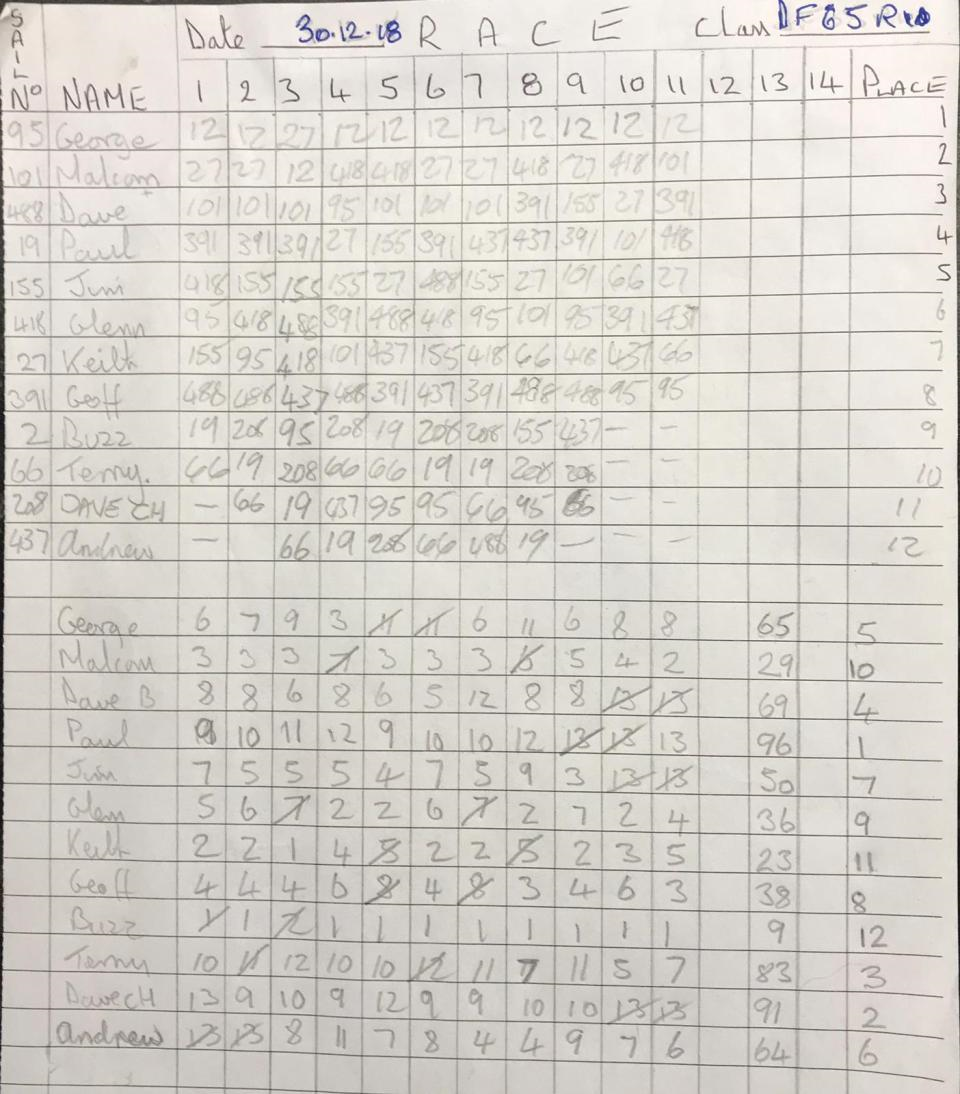 SAIL
Date 30.12.18 RACE Class DF65 R10
No NAME 1 2 3 4 5 6 7 8 9 10 11 12 13 14 PLACE
95 George 12 12 27 12 12 12 12 12 12 12 12 1
101 Malcom 27 27 12 418 418 27 27 418 27 418 101 2
488 Dave 101 101 101 95 101 101 101 391 155 27 391 3
19 Paul 391 391 391 27 155 391 437 437 391 101 418 4
155 Jim 418 155 155 155 27 488 155 27 101 66 27 5
418 Glenn 95 418 488 391 488 418 95 101 95 391 437 6
27 Keith 155 95 418 101 437 155 418 66 418 437 66 7
391 Geoff 488 488 437 488 391 437 391 488 488 95 95 8
2 Buzz 19 208 95 208 19 208 208 155 437 — — 9
66 Terry. 66 19 208 66 66 19 19 208 208 — — 10
208 DAVE CH — 66 19 437 95 95 66 95 66 — — 11
437 Andrew — 66 19 208 66 488 19 — — — 12
George 6 7 9 3 11 11 6 11 6 8 8 65 5
Malcom 3 3 3 7 3 3 3 6 5 4 2 29 10
Dave B 8 8 6 8 6 5 12 8 8 13 13 69 4
Paul 9 10 11 12 9 10 10 12 13 13 13 96 1
Jim 7 5 5 5 4 7 5 9 3 13 13 50 7
Glenn 5 6 7 2 2 6 7 2 7 2 4 36 9
Keith 2 2 1 4 5 2 2 5 2 3 5 23 11
Geoff 4 4 4 6 8 4 8 3 4 6 3 38 8
Buzz 1 1 2 1 1 1 1 1 1 1 1 9 12
Terry 10 11 12 10 10 12 11 7 11 5 7 83 3
Dave CH 13 9 10 9 12 9 9 10 10 13 13 91 2
Andrew 13 13 8 11 7 8 4 4 9 7 6 64 6